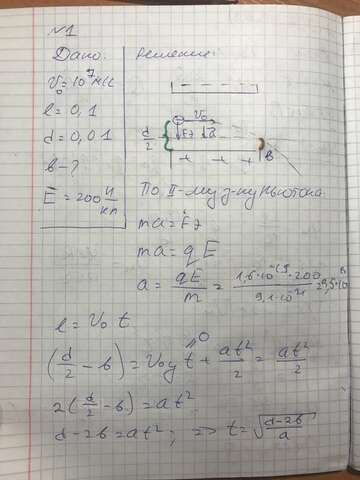 №1
Дано:
Решение:
V₀ = 10⁷ м/с
l = 0,1
d = 0,01
b - ?
E = 200 Н/кл
- - - -
V₀
d/2
Fэ
B
+ + +
По II-му з-ну Ньютона
ma = Fэ
ma = qE
a = qE/m = 1,6·10⁻¹⁹·200/9,1·10⁻³¹
l = V₀ t
(d/2 - b) = V₀y t + at²/2 = at²/2
0
2(d/2 - b) = at²
d - 2b = at²; => t = √(d-2b/a)